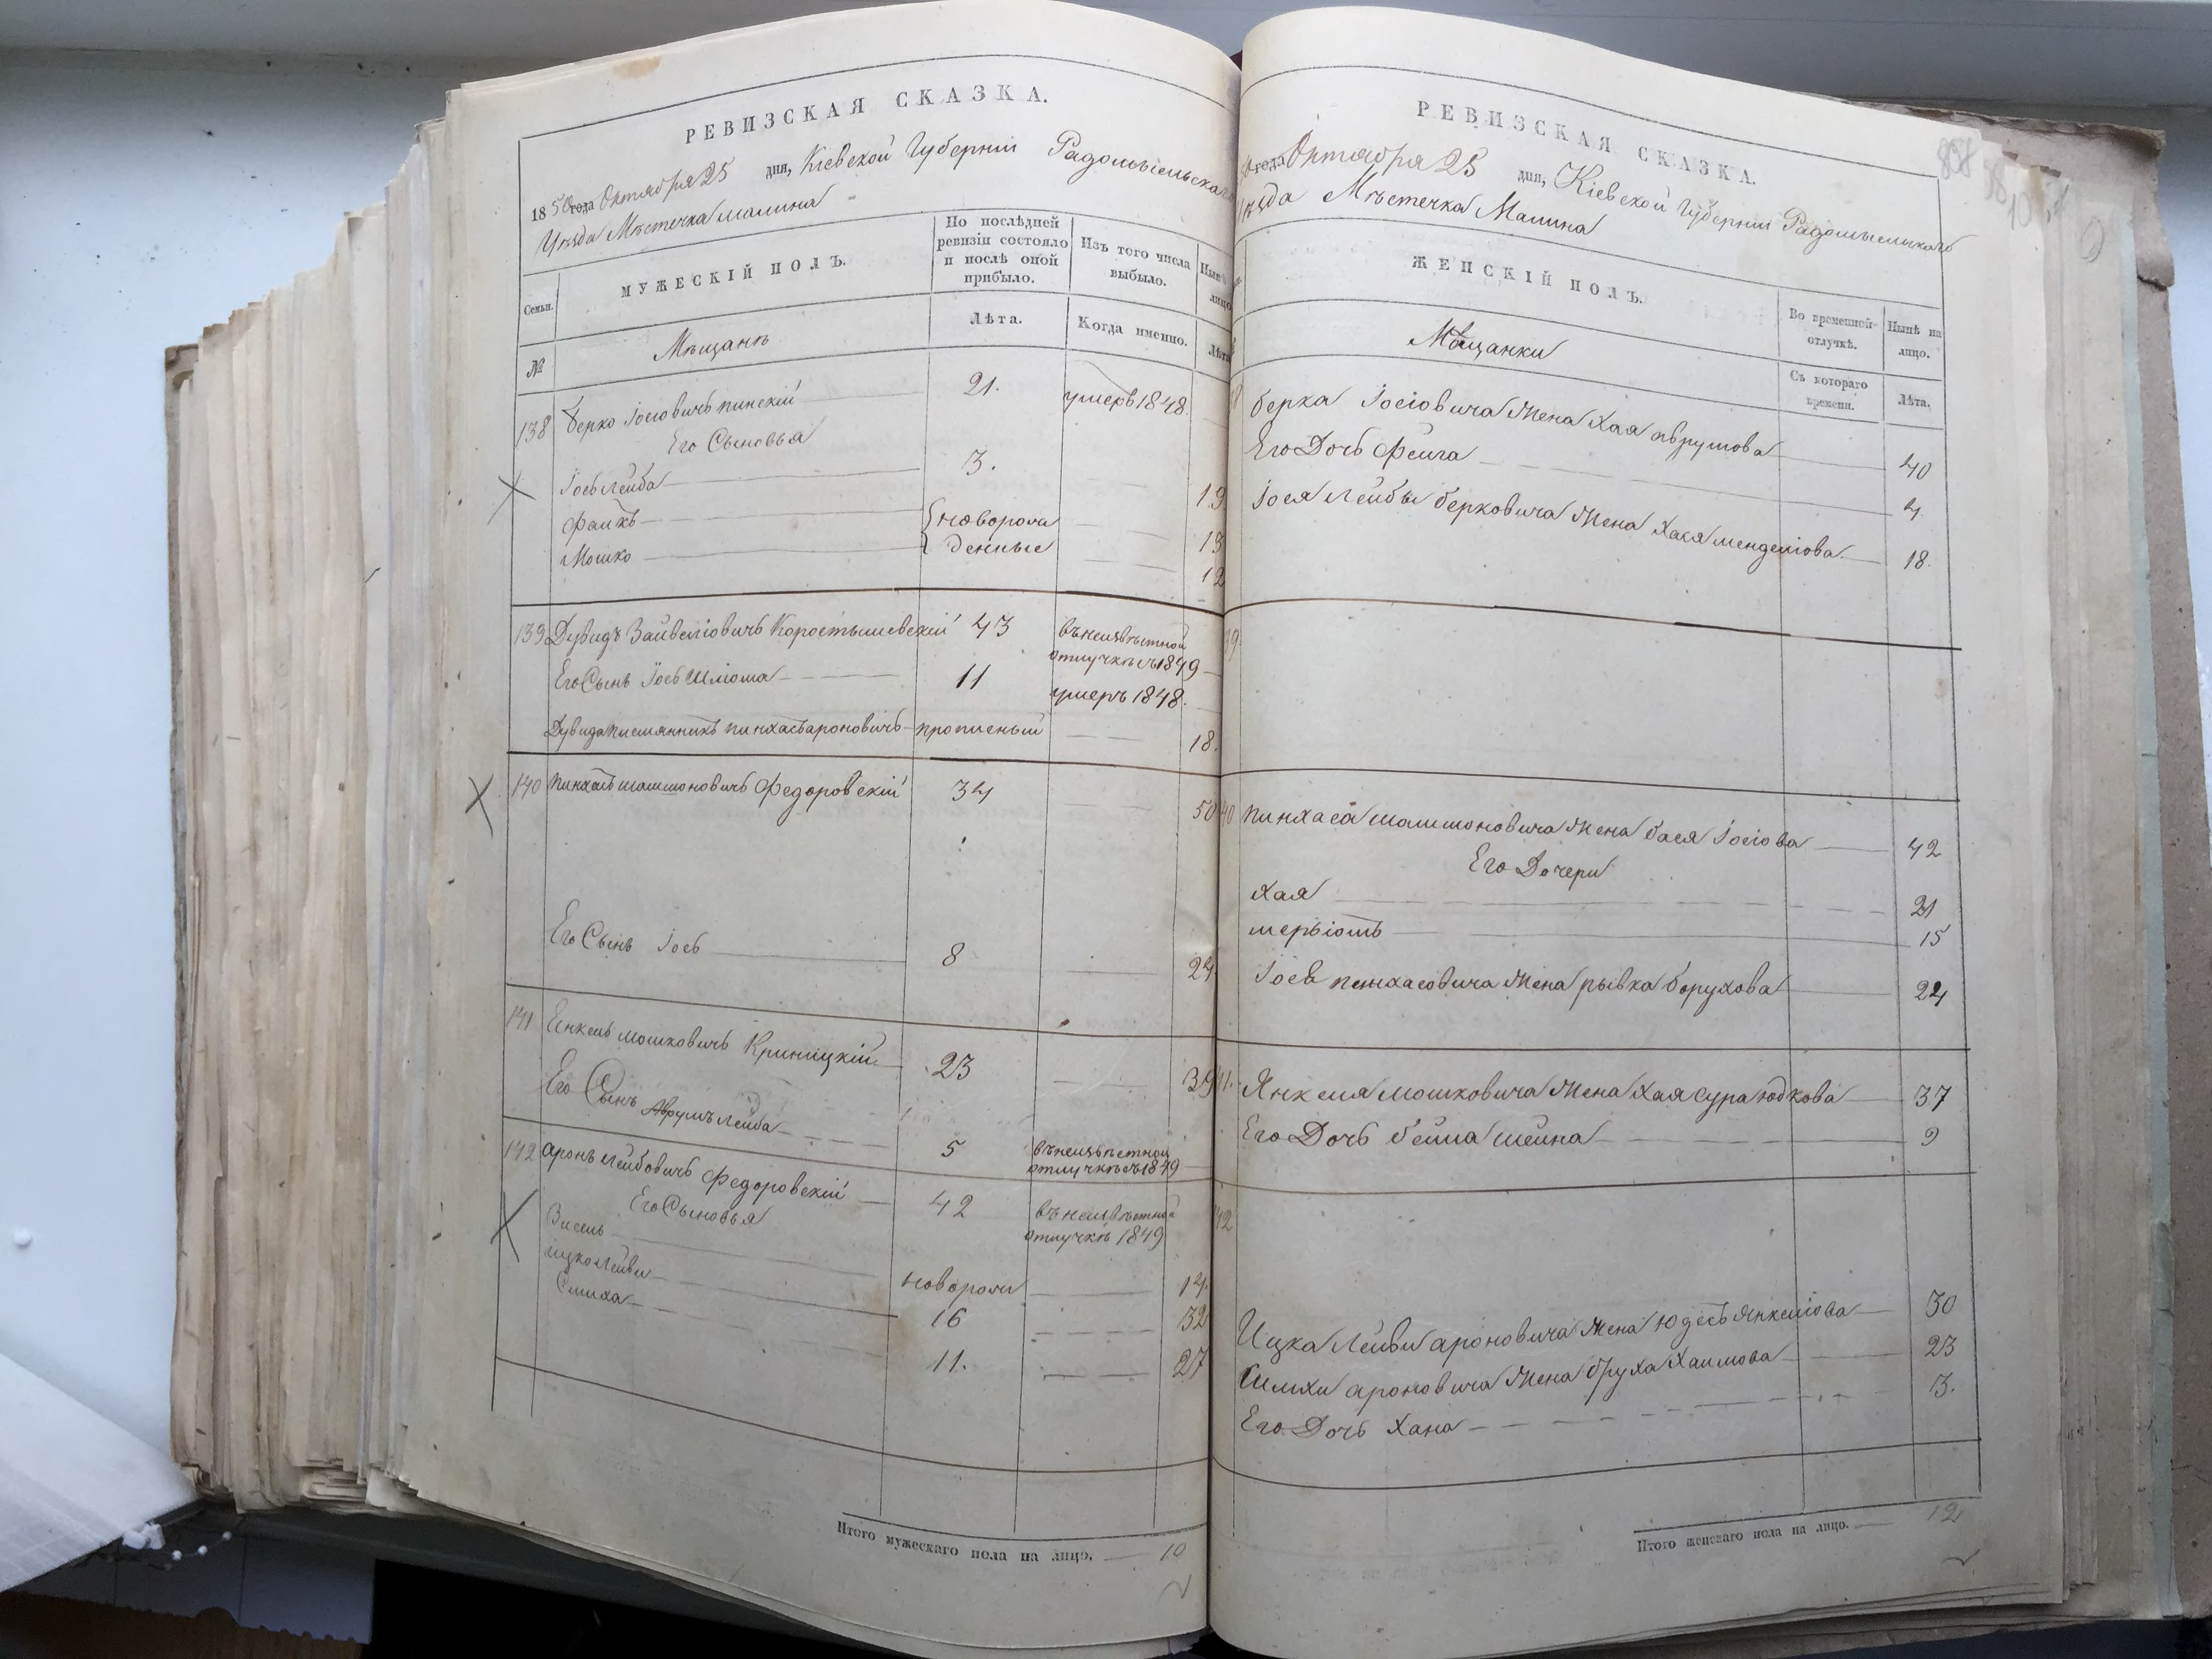 РЕВИЗСКАЯ СКАЗКА.
1850 года Октября 25 дня, Кіевской Губерніи Радомысльскаго
Уѣзда Мѣстечка Малина
Семьи.
МУЖЕСКІЙ ПОЛЪ.
По послѣдней ревизіи состояло и послѣ оной прибыло.
Изъ того числа выбыло.
№
Мѣщанѣ
Лѣта.
Когда именно.
Лѣта
138 Берко Іосіовичъ пинскій 21. умеръ 1848.
Его Сыновья
Іось Лейба 3. 19
Фаикъ новорож 13
Мошко денные 12
139 Дувидъ Зайвеліовичъ Коростышевскій 43 въ неизвѣстной отлучкѣ съ 1849
Его Сынъ Іось Шліома 11 умеръ 1848.
Дувида племянникъ пинхасъ ароновичъ прописный 18.
140 пинхасъ шашионовичъ Федоровскій 34 50
Его Сынъ Іось 8 24
141 Енкель мошковичъ Криницкій 23 39
Его Сынъ Аврумъ Лейба 5 въ неизвѣстной отлучкѣ съ 1849
142 аронъ Лейбовичъ Федоровскій 42 въ неизвѣстной отлучкѣ 1849
Его Сыновья
Зисель новорож 14.
ицко Лейви 16 32
Симха 11. 27
Итого мужескаго пола на лицо. 10
РЕВИЗСКАЯ СКАЗКА.
года Октября 25 дня, Кіевской Губерніи Радомысльскаго
Уѣзда Мѣстечка Малина
ЖЕНСКІЙ ПОЛЪ.
Во временной отлучкѣ.
Нынѣ на лицо.
Мѣщанки
Съ котораго времени.
Лѣта.
берка Іосіовича жена Хая аврумова 40
Его Дочь Фейга 4
Іося Лейбы берковича жена Хася менделіова 18.
39
40 пинхаса шашионовича жена бася Іосіова 42
Его Дочери
Хая 21
мерьіомъ 15
Іося пинхасовича жена рывка борухова 24
41. Янкеля мошковича жена Хая сура юдкова 37
Его Дочь бейла шейна 9
42
Ицка Лейви ароновича жена юдесъ Янкеліова 30
Симхи ароновича жена бруха Хаимова 23
Его Дочь Хана 3.
Итого женскаго пола на лицо. 12